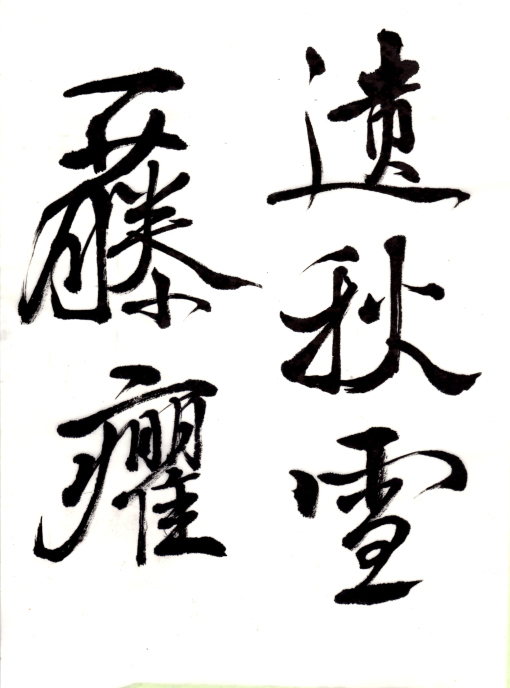 遗秋雪
藤癯